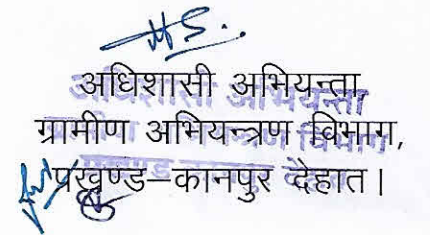 अधिशासी अभियन्ता,
ग्रामीण अभियन्त्रण विभाग,
प्रखण्ड–कानपुर देहात।